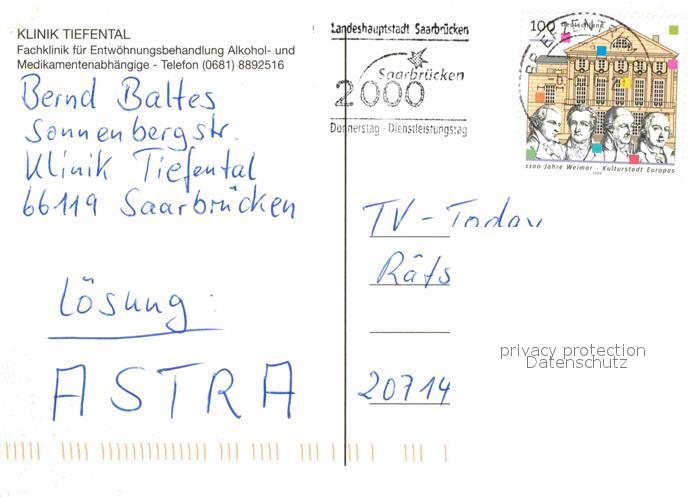 KLINIK TIEFENTAL
Fachklinik für Entwöhnungsbehandlung Alkohol- und
Medikamentenabhängige - Telefon (0681) 8892516
Bernd Baltes
Sonnenbergstr.
Klinik Tiefental
66119 Saarbrücken
Lösung:
ASTRA
Landeshauptstadt Saarbrücken
Saarbrücken
2000
Donnerstag - Dienstleistungstag
100 Deutschland
1100 Jahre Weimar - Kulturstadt Europas
1999
TV-Today
Räts
20714
privacy protection
Datenschutz